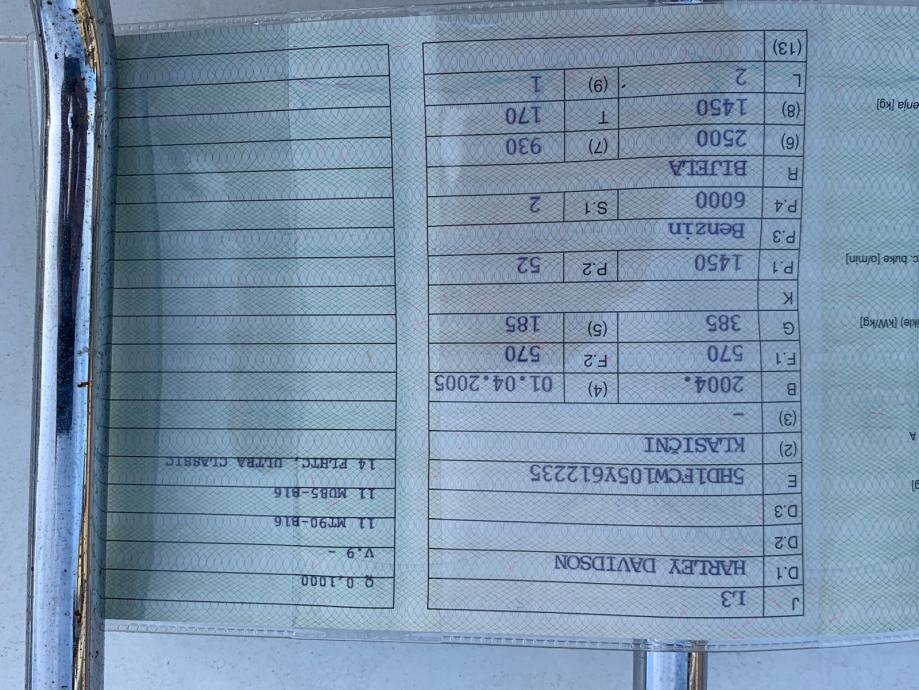 J L3
D.1 HARLEY DAVIDSON
D.2
D.3
E 5HD1FCW105Y612235
(2) KLASIČNI
(3) -
B 2004. (4) 01.04.2005
F.1 570 F.2 570
G 385 (5) 185
K
P.1 1450 P.2 52
P.3 Benzin
P.4 6000 S.1 2
R BIJELA
(6) 2500 (7) 930
(8) 1450 T 170
L 2 (9) 1
(13)
Q 0,1000
V.9 -
11 MT90-B16
11 MU85-B16
14 FLHTC, ULTRA CLASSIC
A
c. buke [o/min]
enja [kg]